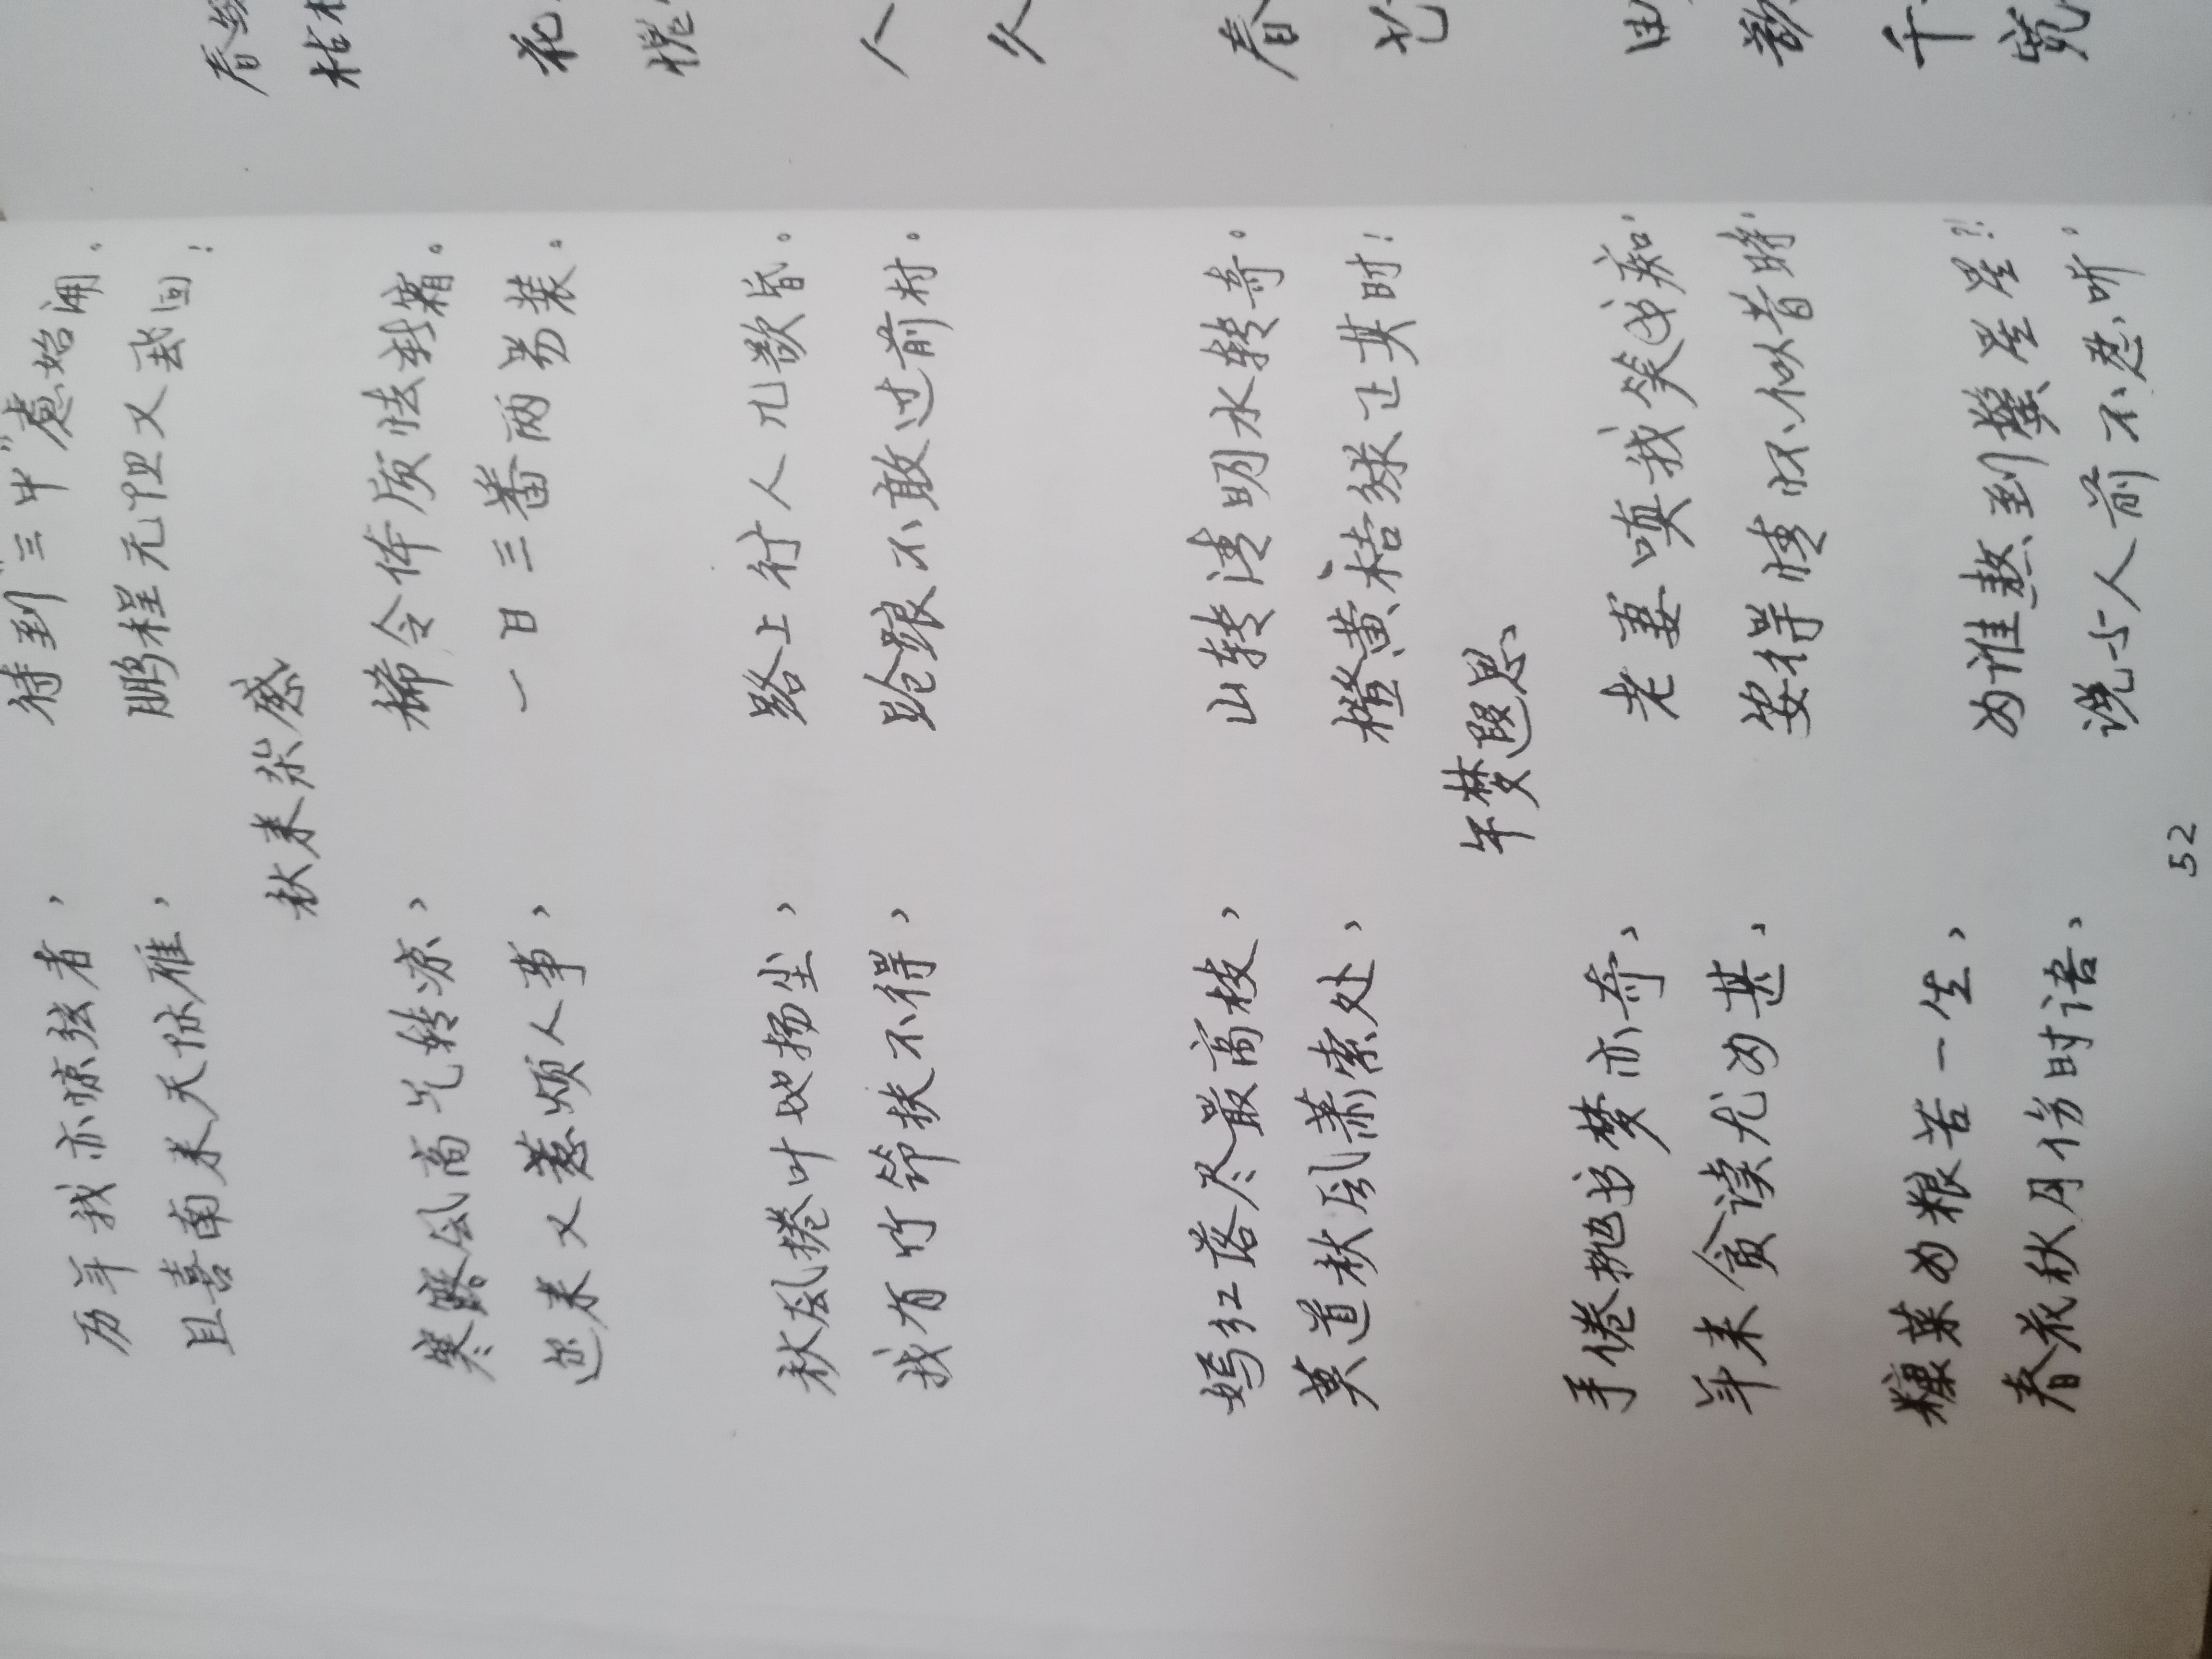 历年我亦惊弦者， 待到“三中”虑始
且喜南来天外雁， 鹏程无阻又飞回！
秋来杂感
寒露风高气转凉， 稀令体质怯
迩来又惹烦人事， 一日三番两易装。
秋风捲叶地扬尘， 路上行人兀欲昏。
我有竹筇扶不得， 跄踉不敢过前村。
嫣红落尽最高枝， 山转清明水转奇。
莫道秋风萧索处， 橙黄桔绿正其时！
午梦遐思
手倦抛书梦亦奇， 老妻嗔我笑书痴。
年来贪读尤为甚， 安得情怀似昔时。
糠菜为粮苦一生， 为谁熬到鬓星星?!
春花秋月伤时语， 说与人前不忍听。
52
春
枯
花
人
久
春
由
歌
千